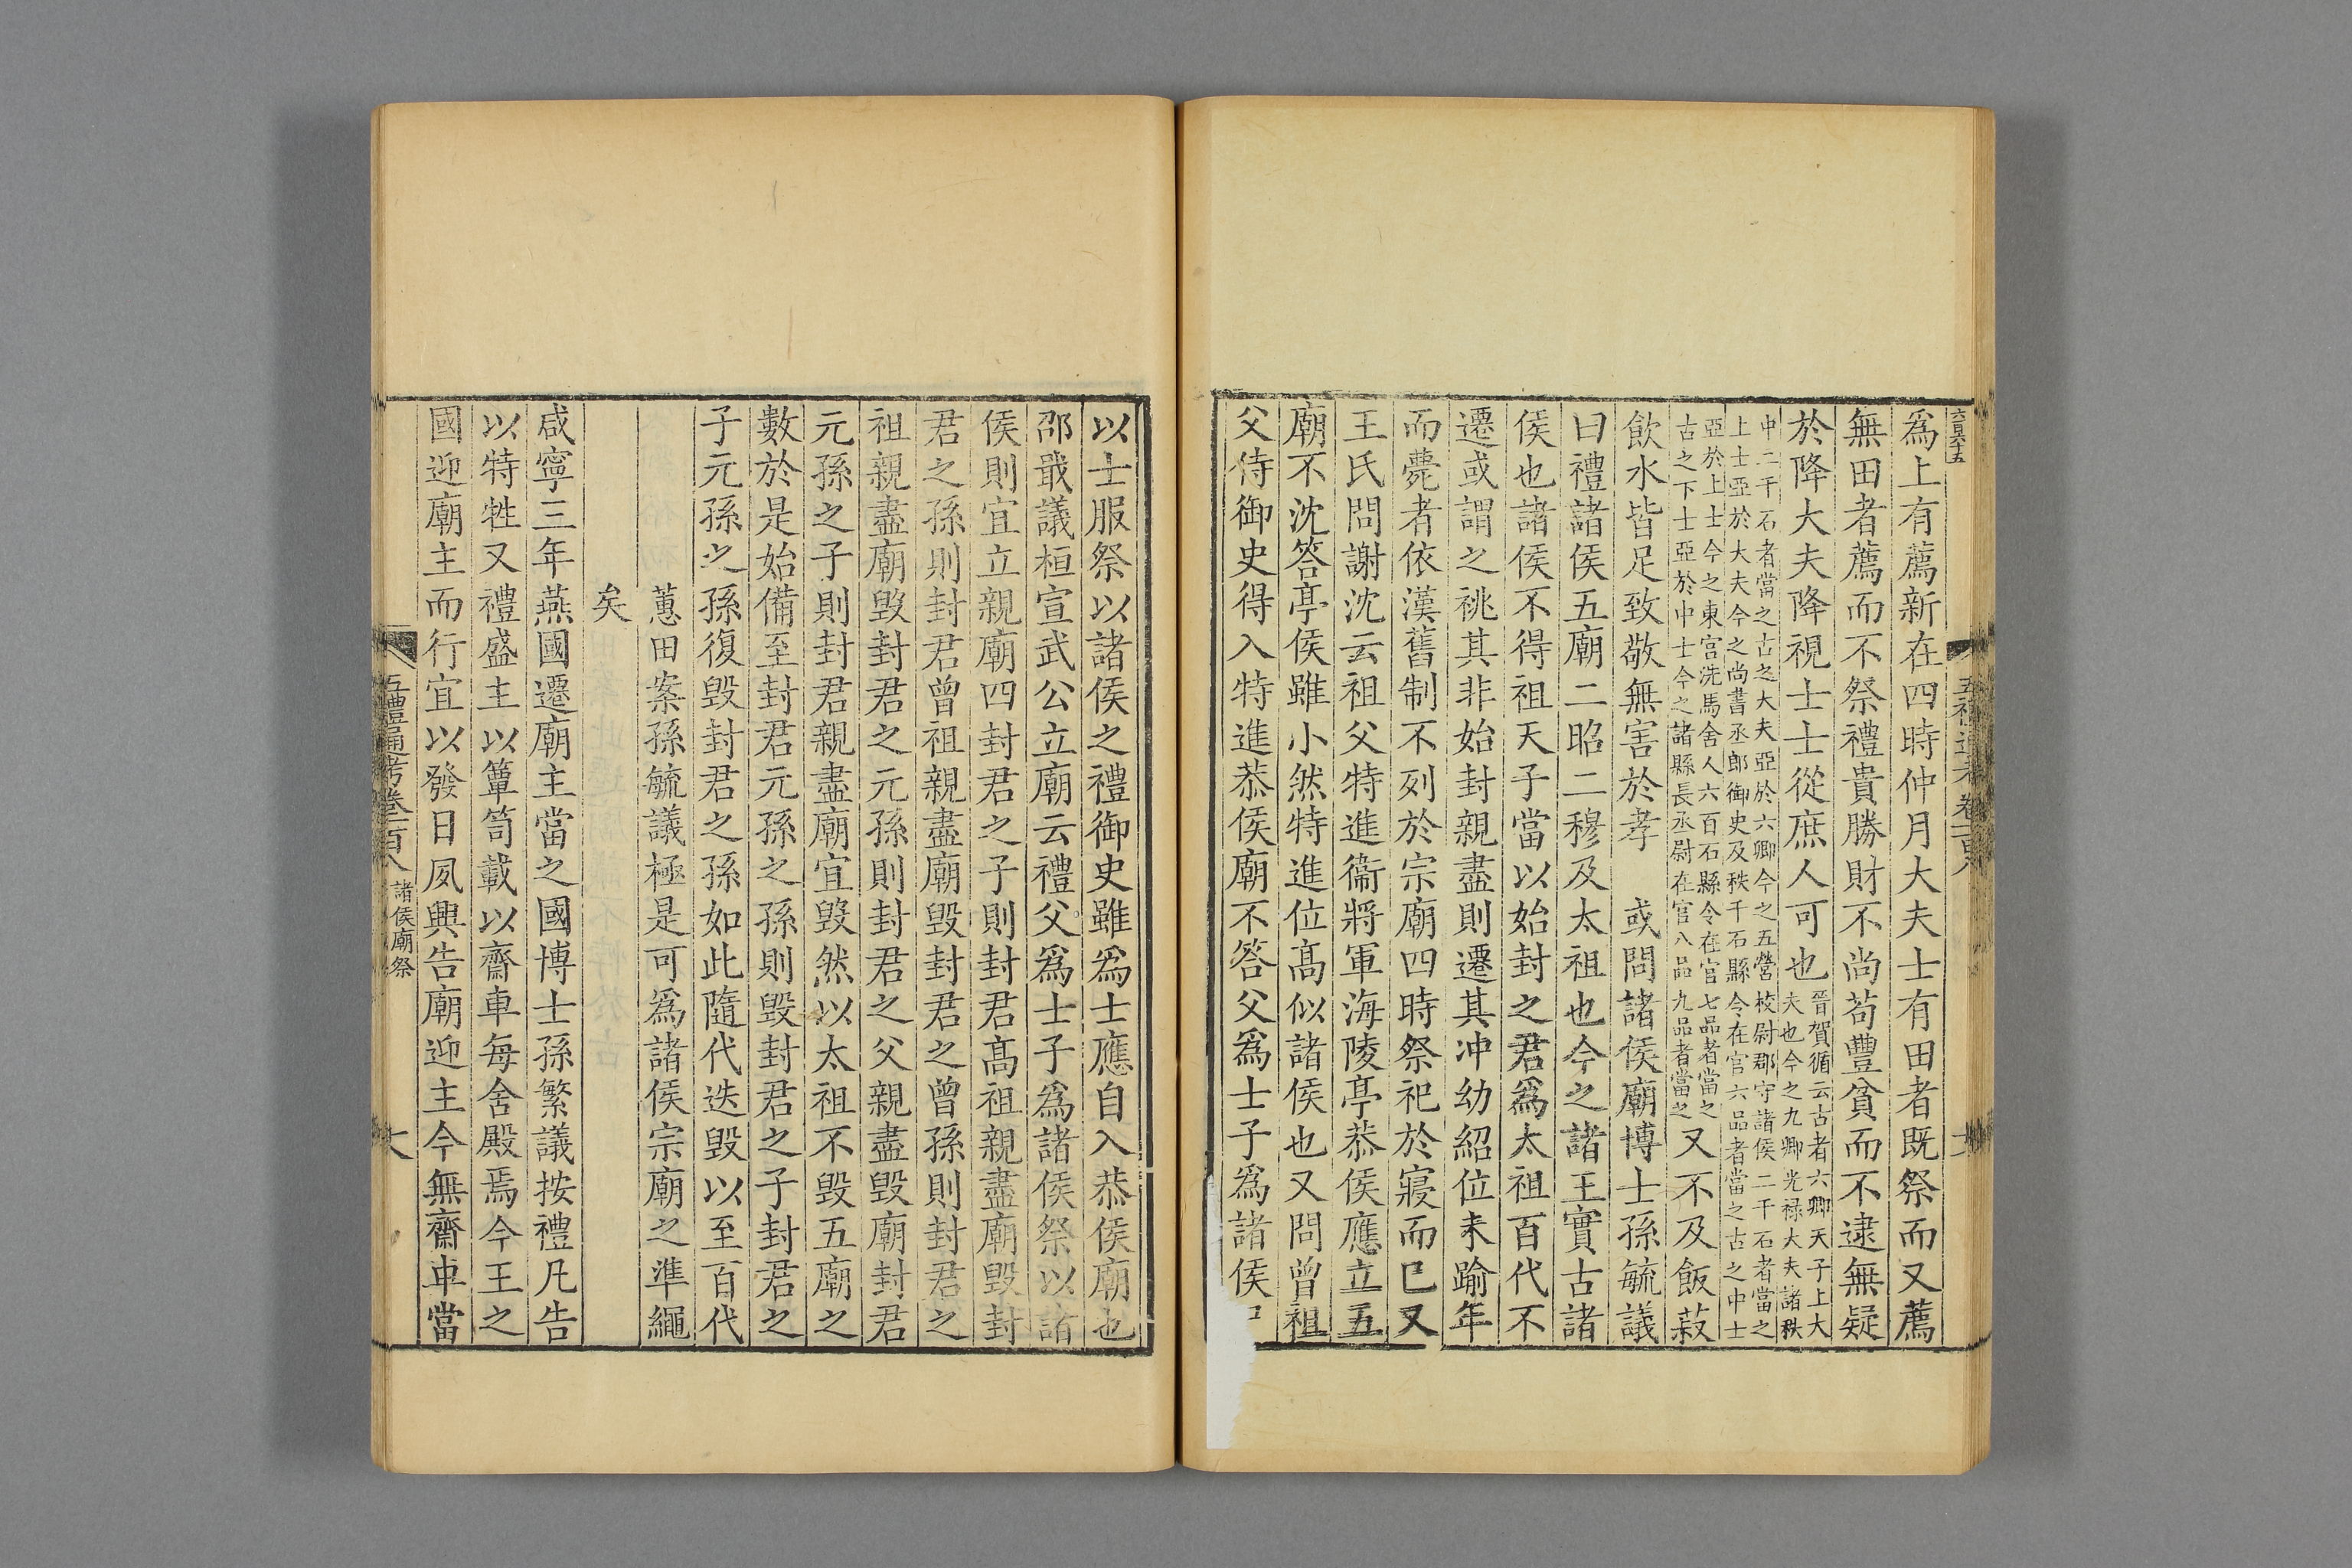 六百六十五
爲上有薦新在四時仲月大夫士有田者既祭而又薦
無田者薦而不祭禮貴勝財不尚苟豐貧而不逮無疑
於降大夫降視士士從庶人可也
晉賀循云古者六卿天子上大
夫也今之九卿光祿大夫諸秩
中二千石者當之古之大夫亞於六卿今之五營校尉郡守諸侯二千石者當之
上士亞於大夫今之尚書丞郎御史及秩千石縣令在官六品者當之古之中士
亞於上士今之東宮洗馬舍人六百石縣令在官七品者當之
古之下士亞於中士今之諸縣長丞尉在官八品九品者當之
又不及飯菽
飲水皆足致敬無害於孝　或問諸侯廟博士孫毓議
曰禮諸侯五廟二昭二穆及太祖也今之諸王實古諸
侯也諸侯不得祖天子當以始封之君爲太祖百代不
遷或謂之祧其非始封親盡則遷其冲幼紹位未踰年
而薨者依漢舊制不列於宗廟四時祭祀於寢而已又
王氏問謝沈云祖父特進衞將軍海陵亭恭侯應立五
廟不沈答亭侯雖小然特進位高似諸侯也又問曾祖
父侍御史得入特進恭侯廟不答父爲士子爲諸侯
以士服祭以諸侯之禮御史雖爲士應自入恭侯廟也
邵戢議桓宣武公立廟云禮父爲士子爲諸侯祭以諸
侯則宜立親廟四封君之子則封君高祖親盡廟毀封
君之孫則封君曾祖親盡廟毀封君之曾孫則封君之
祖親盡廟毀封君之元孫則封君之父親盡毀廟封君
元孫之子則封君親盡廟宜毀然以太祖不毀五廟之
數於是始備至封君元孫之孫則毀封君之子封君之
子元孫之孫復毀封君之孫如此隨代迭毀以至百代
蕙田案孫毓議極是可爲諸侯宗廟之準繩
矣
咸寧三年燕國遷廟主當之國博士孫繁議按禮凡告
以特牲又禮盛主以簞笥載以齋車每舍殿焉今王之
國迎廟主而行宜以發日夙興告廟迎主今無齋車當
五禮通考卷一百八
諸侯廟祭